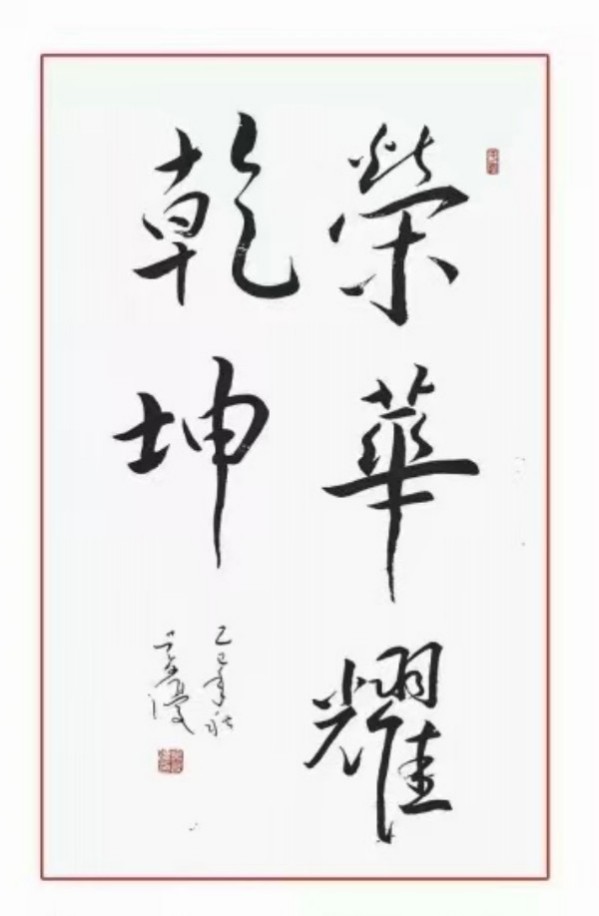 榮華耀
乾坤
乙巳年秋